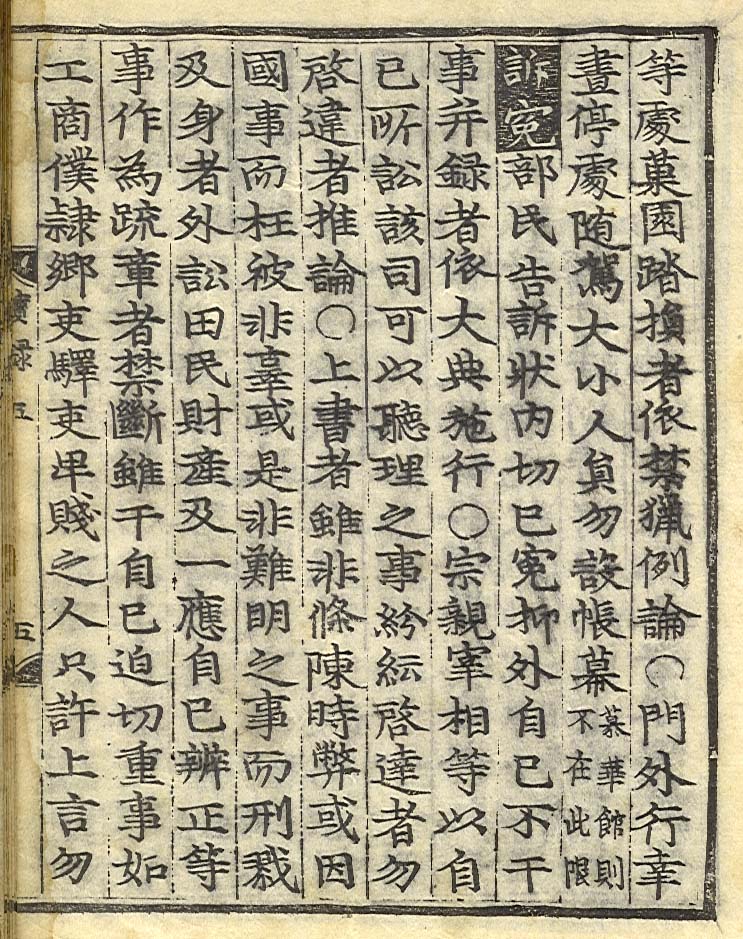 等處菓園踏損者依禁獵例論○門外行幸
晝停處随駕大小人員勿設帳幕慕華館則不在此限
訴寃部民告訴狀內切已寃抑外自已不干
事并録者依大典施行○宗親宰相等以自
已所訟該司可以聽理之事紛紜啓達者勿
啓違者推論○上書者雖非條陳時弊或因
國事而枉被非辜或是非難明之事而刑戮
及身者外訟田民財產及一應自已辨正等
事作為疏章者禁斷雖干自已迫切重事如
工商僕隷鄉吏驛吏卑賤之人只許上言勿
録五 五